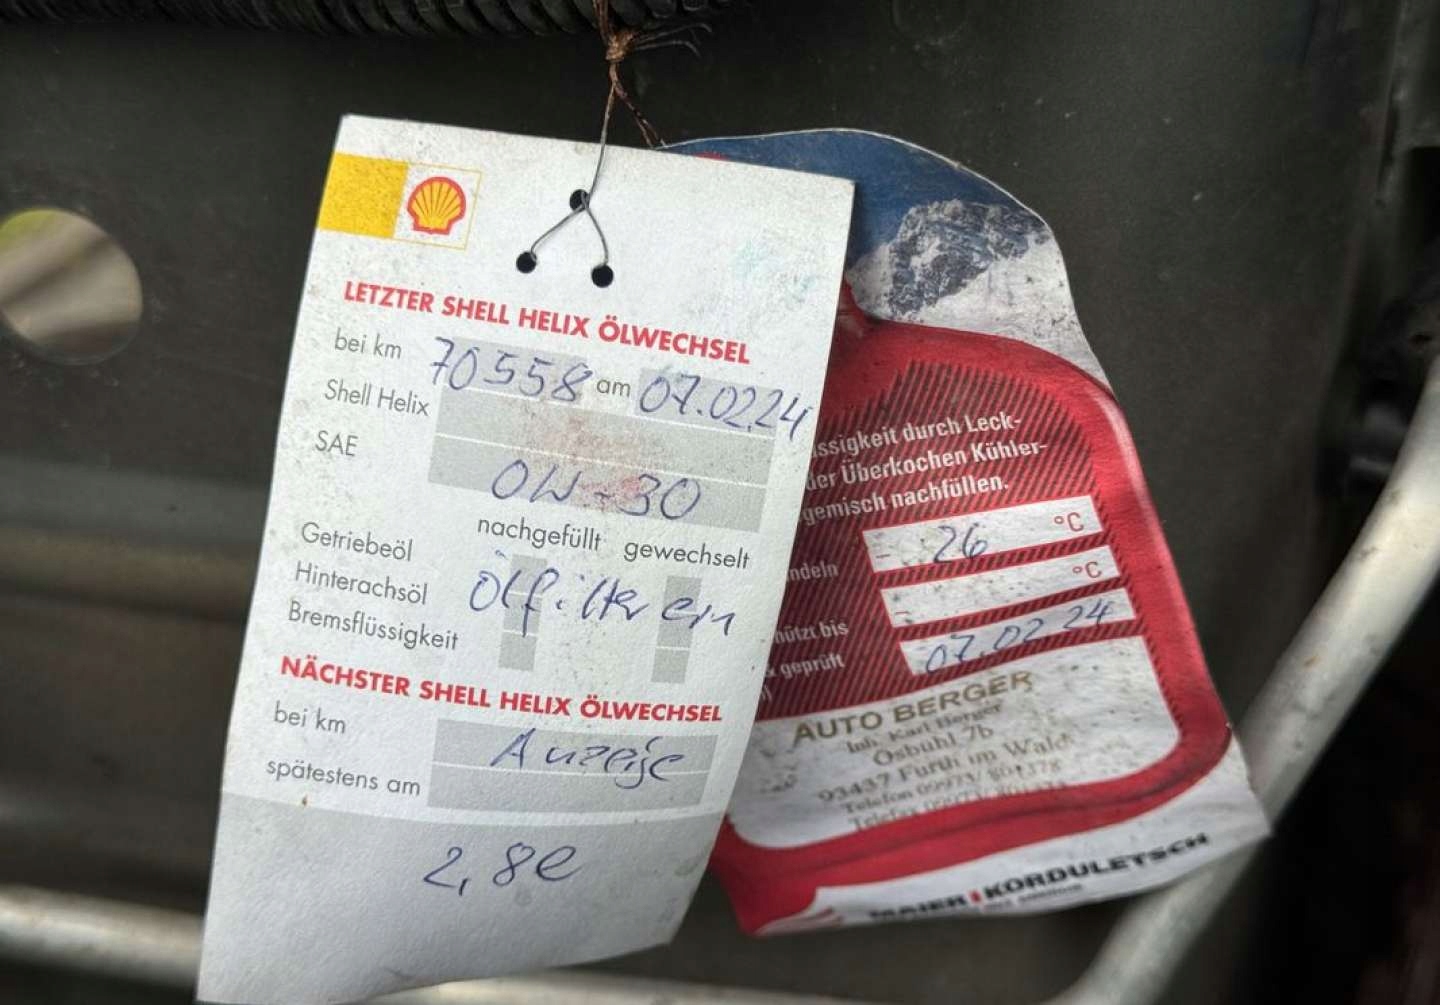 LETZTER SHELL HELIX ÖLWECHSEL
bei km 70558 am 07.02.24
Shell Helix
SAE 0W-30
nachgefüllt gewechselt
Getriebeöl
Hinterachsöl Ölfilter ern
Bremsflüssigkeit
NÄCHSTER SHELL HELIX ÖLWECHSEL
bei km Anzeige
spätestens am
2,8l
ssigkeit durch Leck-
der Überkochen Kühler-
gemisch nachfüllen.
- 26 °C
ndeln
- °C
hützt bis
geprüft 07.02.24
AUTO BERGER
Inh. Karl Berger
Ösbühl 7b
93437 Furth im Wald
Telefon 09973/ 801378
Telefax 09973/
MAIER KORDULETSCH